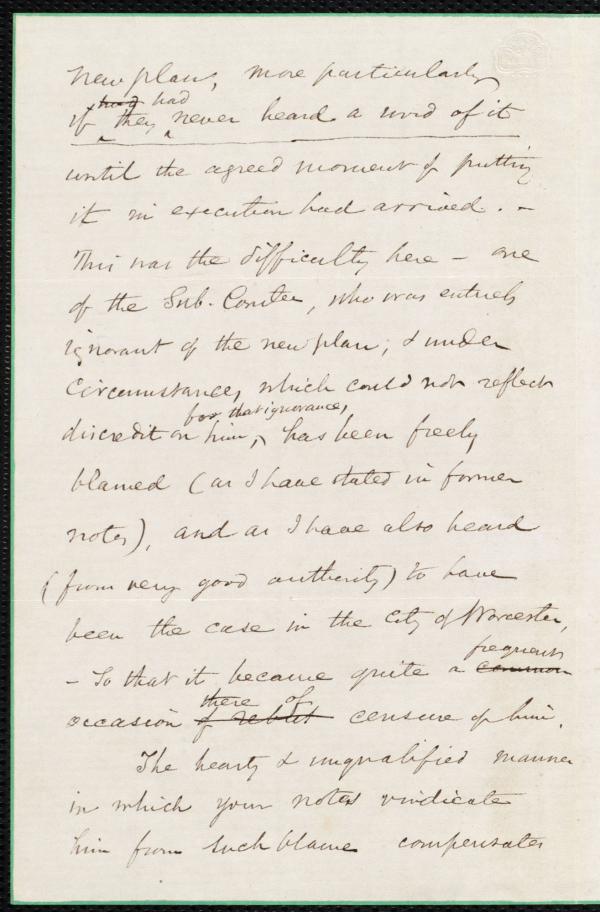 new plan, more particularly
had had
if they never heard a word of it
until the agreed moment of putting
it in execution had arrived. –
This was the difficulty here – one
of the Sub-Comtee, who was entirely
ignorant of the new plan, & under
circumstances which could not reflect
for that ignorance,
discredit on him, has been freely
blamed (as I have stated in former
notes), and as I have also heard
(from very good authority) to have
been the case in the City of Worcester,
frequent
– So that it became quite a common
there of
occasion censure of him.
The hearty & unqualified manner
in which your notes vindicate
him from such blame compensates